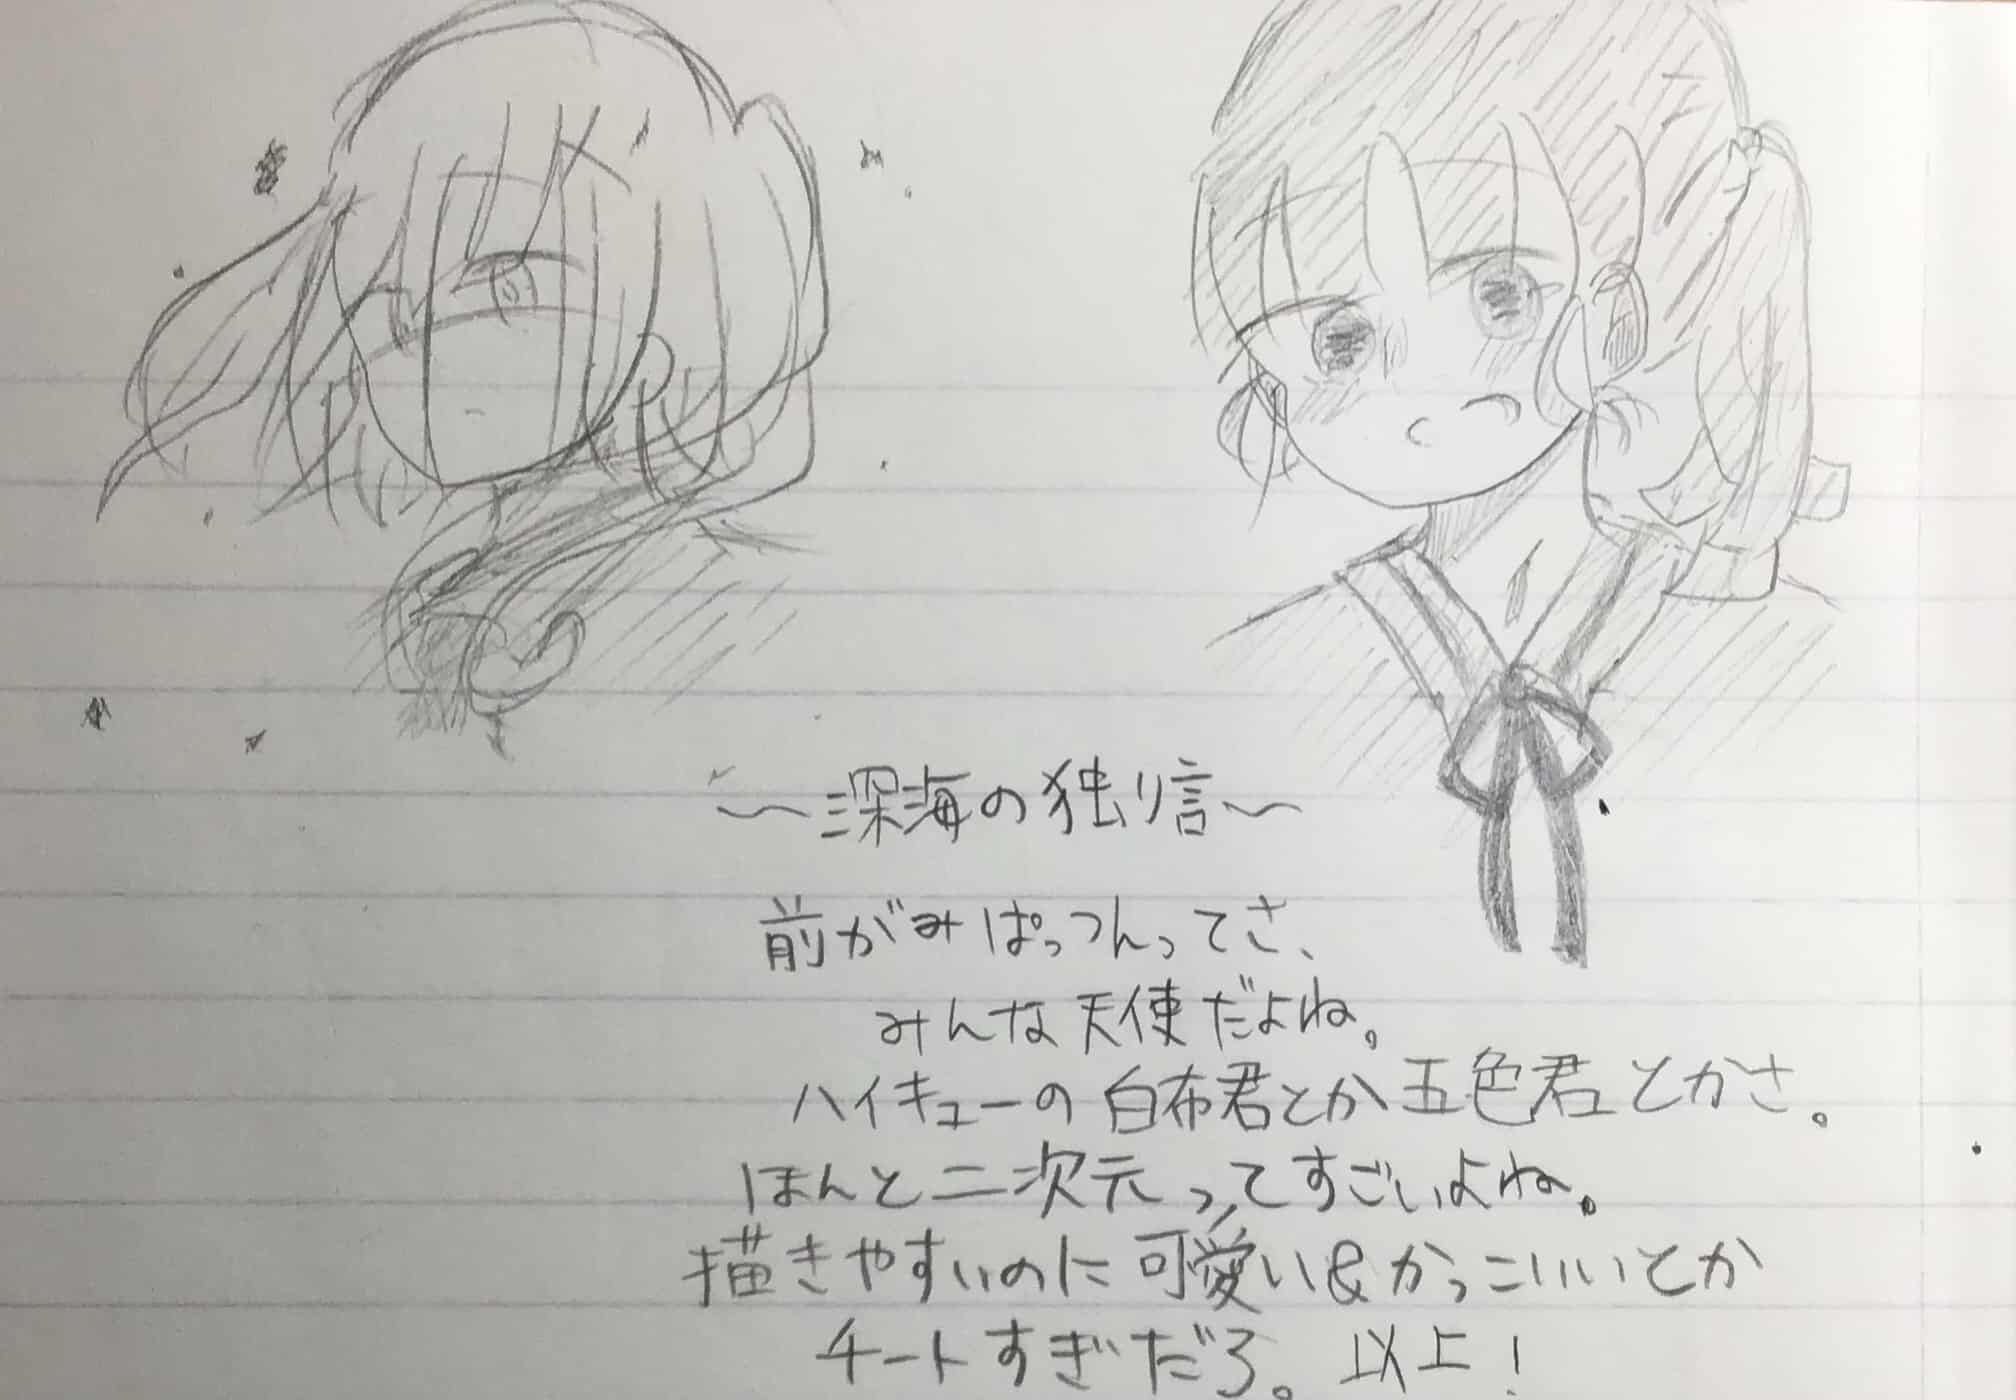 〜深海の独り言〜
前がみぱっつんってさ、
みんな天使だよね。
ハイキューの白布君とか五色君とかさ。
ほんと二次元ってすごいよね。
描きやすいのに可愛い&かっこいいとか
チートすぎだろ。以上!